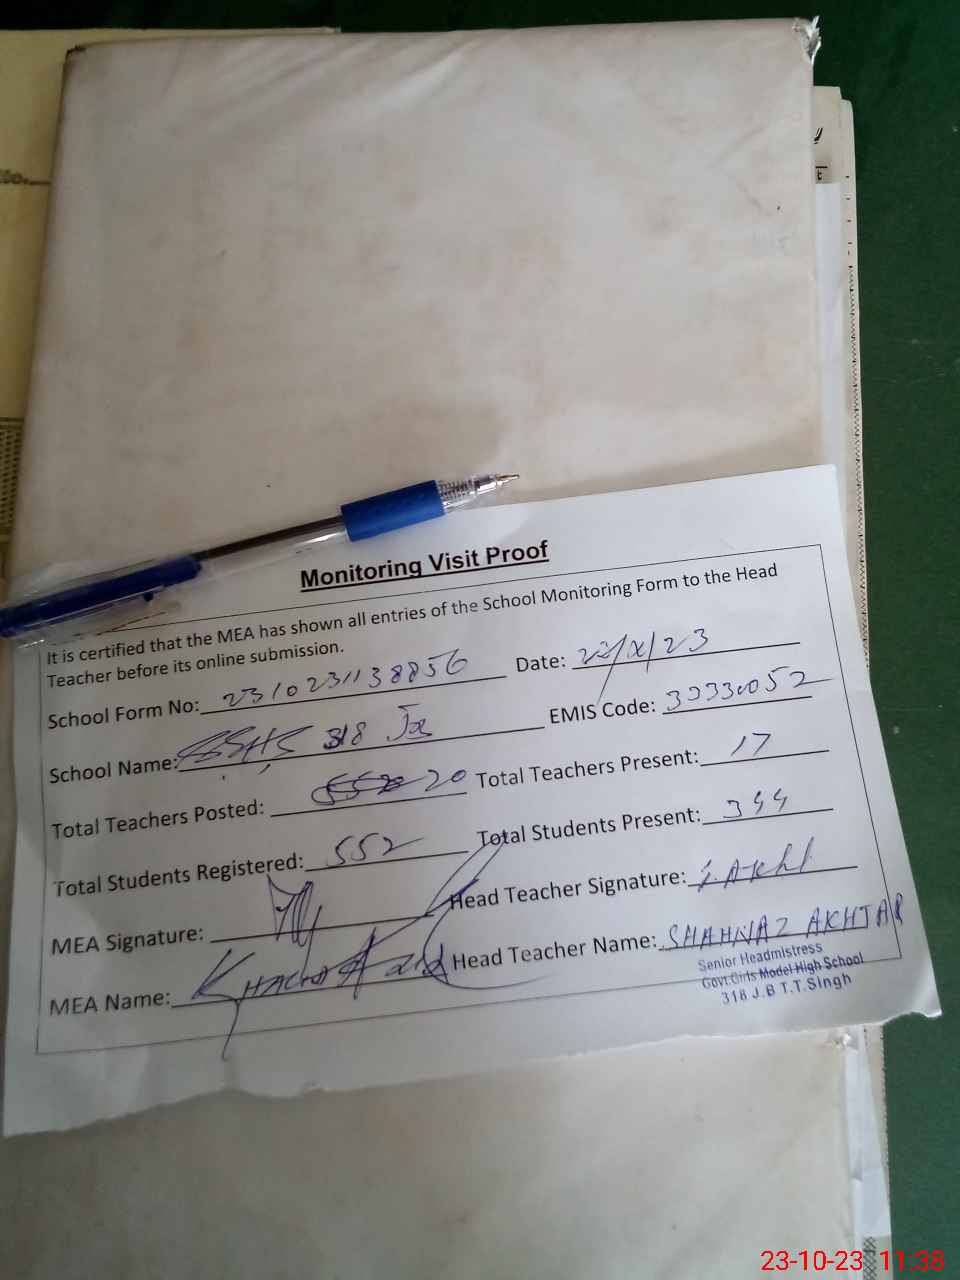 Monitoring Visit Proof
It is certified that the MEA has shown all entries of the School Monitoring Form to the Head
Teacher before its online submission.
School Form No: 231023113 8856 Date: 23/X/23
School Name: GGHS 318 JB EMIS Code: 33330052
Total Teachers Posted: 20 Total Teachers Present: 17
Total Students Registered: 552 Total Students Present: 344
MEA Signature: Head Teacher Signature: S. Akht
MEA Name: Head Teacher Name: SHAHNAZ AKHTAR
Senior Headmistress
Govt.Girls Model High School
318 J.B T.T.Singh
23-10-23 11:38